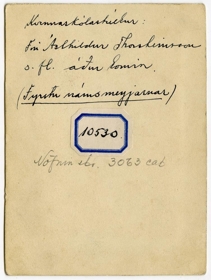 Kvennaskólastúlkur:
Frú Ásthildur Thorsteinsson
o. fl. áður komin.
(Fyrstu námsmeyjarnar)
10530
Nöfnin skv. 3063 cab